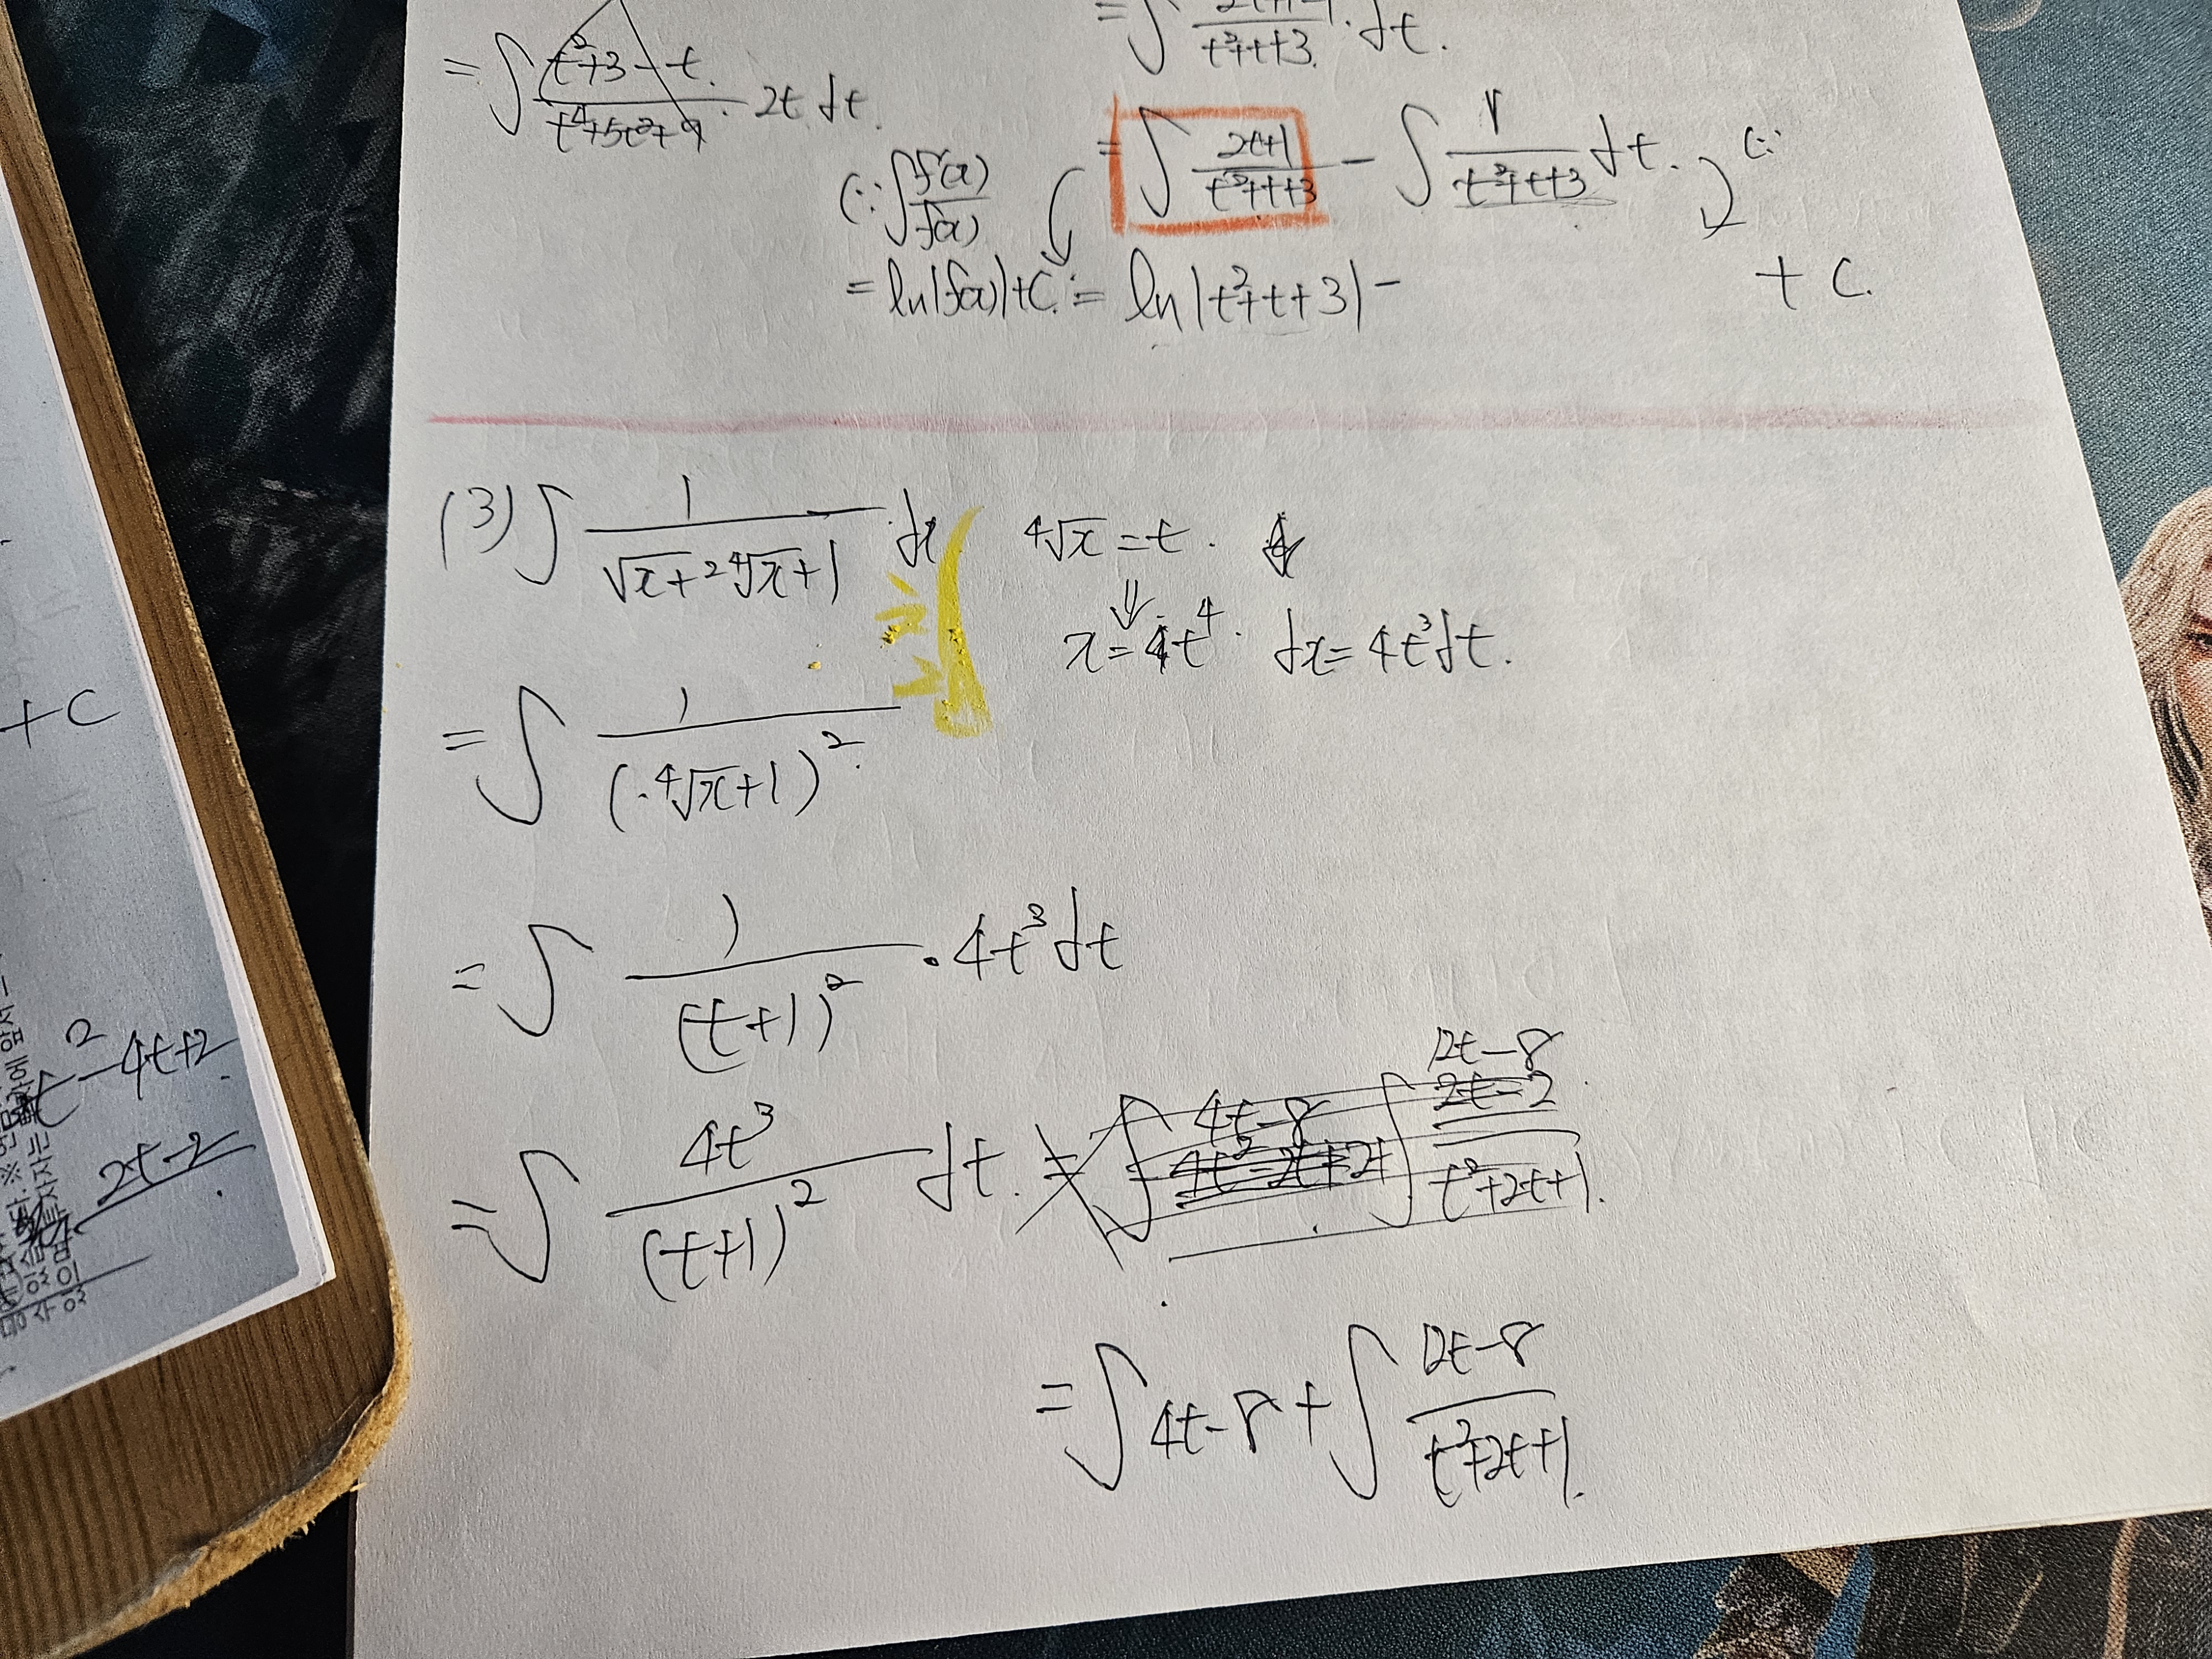 = ∫ (t²+3-t)/(t⁴+5t²+9) · 2t dt.
t²+t+3 · dt.
= ∫ (2t+1)/(t²+t+3) - ∫ 1/(t²+t+3) dt. (∵
(∵ ∫ f'(x)/f(x)
= ln|f(x)|+C. = ln|t²+t+3| - + C.
(3) ∫ 1/(√x+2⁴√x+1) dx ⁴√x = t.
⇓
x = t⁴. dx = 4t³dt.
= ∫ 1/(⁴√x+1)²
= ∫ 1/(t+1)² · 4t³dt
= ∫ 4t³/(t+1)² dt. = ∫ 4t-8 ∫ (12t-8)/(t²+2t+1).
= ∫ 4t-8 + ∫ (12t-8)/(t²+2t+1).
+ C
-4t+2.
2t-2